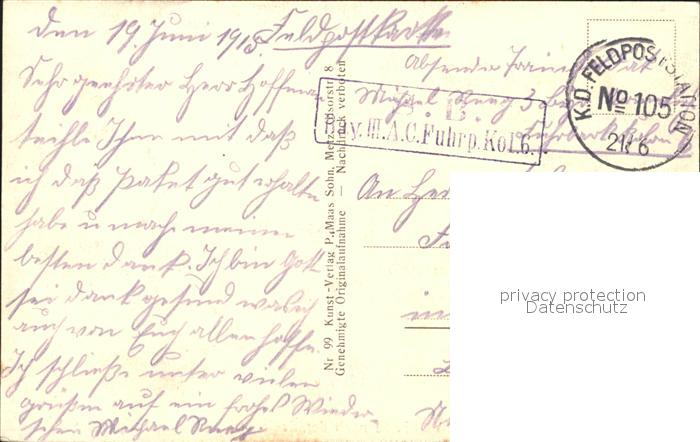 den 19. Juni 1915 Feldpostkarte
Sehr geehrter Herr Hoffmann
teihle Ihnen mit daß
ich daß Paket gut erhalten
habe u mach meinen
besten Dank. Ich bin Gott
sei dank gesund was ich
auch von Euch allen hoffe.
Ich schließe unter vielen
grüßen auf ein frohes Wieder-
sehen Michael
Nr 99 Kunst-Verlag P. Maas Sohn, Metz,
Genehmigte Originalaufnahme — Nachdruck verboten
Absender
Michael
S. B.
III. A.C. Fuhrp. Kol. 6.
K.D. FELDPOSTSTATION
No 105
21 6
An
in
privacy protection
Datenschutz